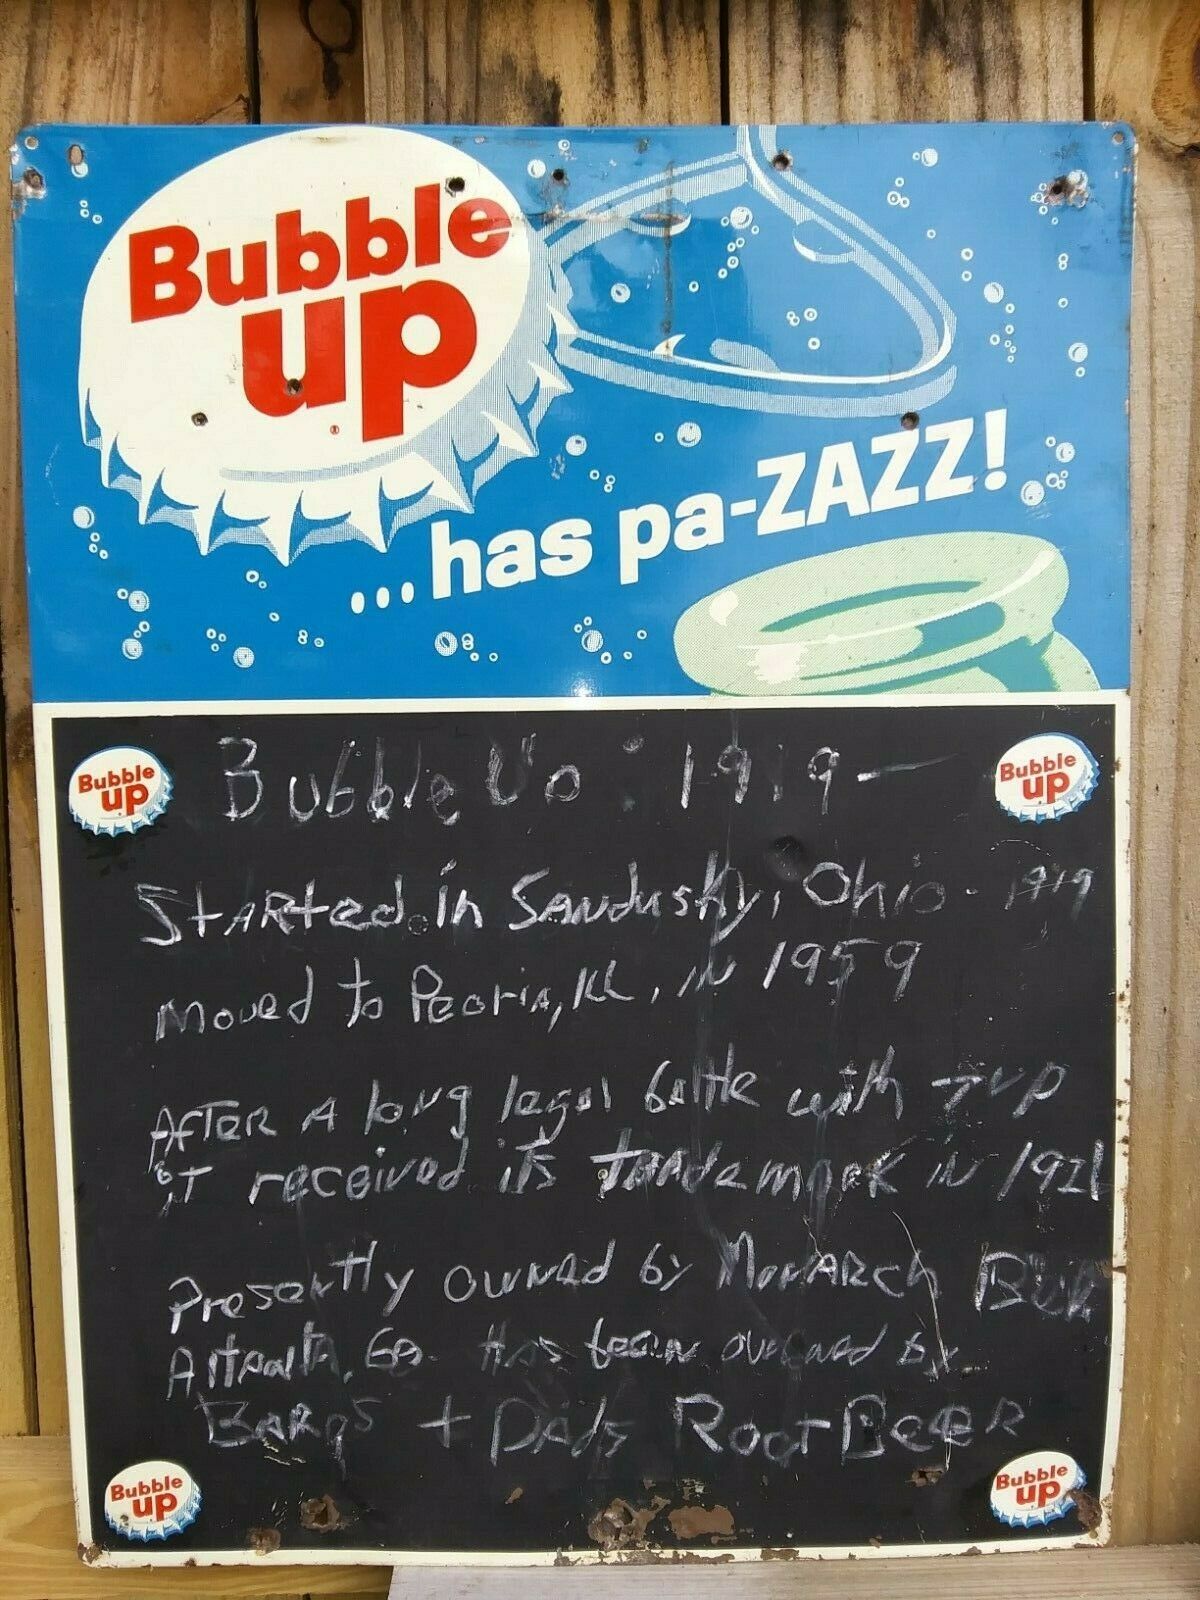 Bubble
up
®
...has pa-ZAZZ!
Bubble
up
Bubble
up
Bubble Up : 1919 —
StARted in Sandusky, Ohio - 1919
Moved to Peoria, ILL, iN 1959
AFTER A long legal battle with 7up
it received its trademark iN 1921
Presently owned by MonARch
Atlanta, Ga. HAs been owned by
BARqs + Dads Root Beer
Bubble
up
Bubble
up